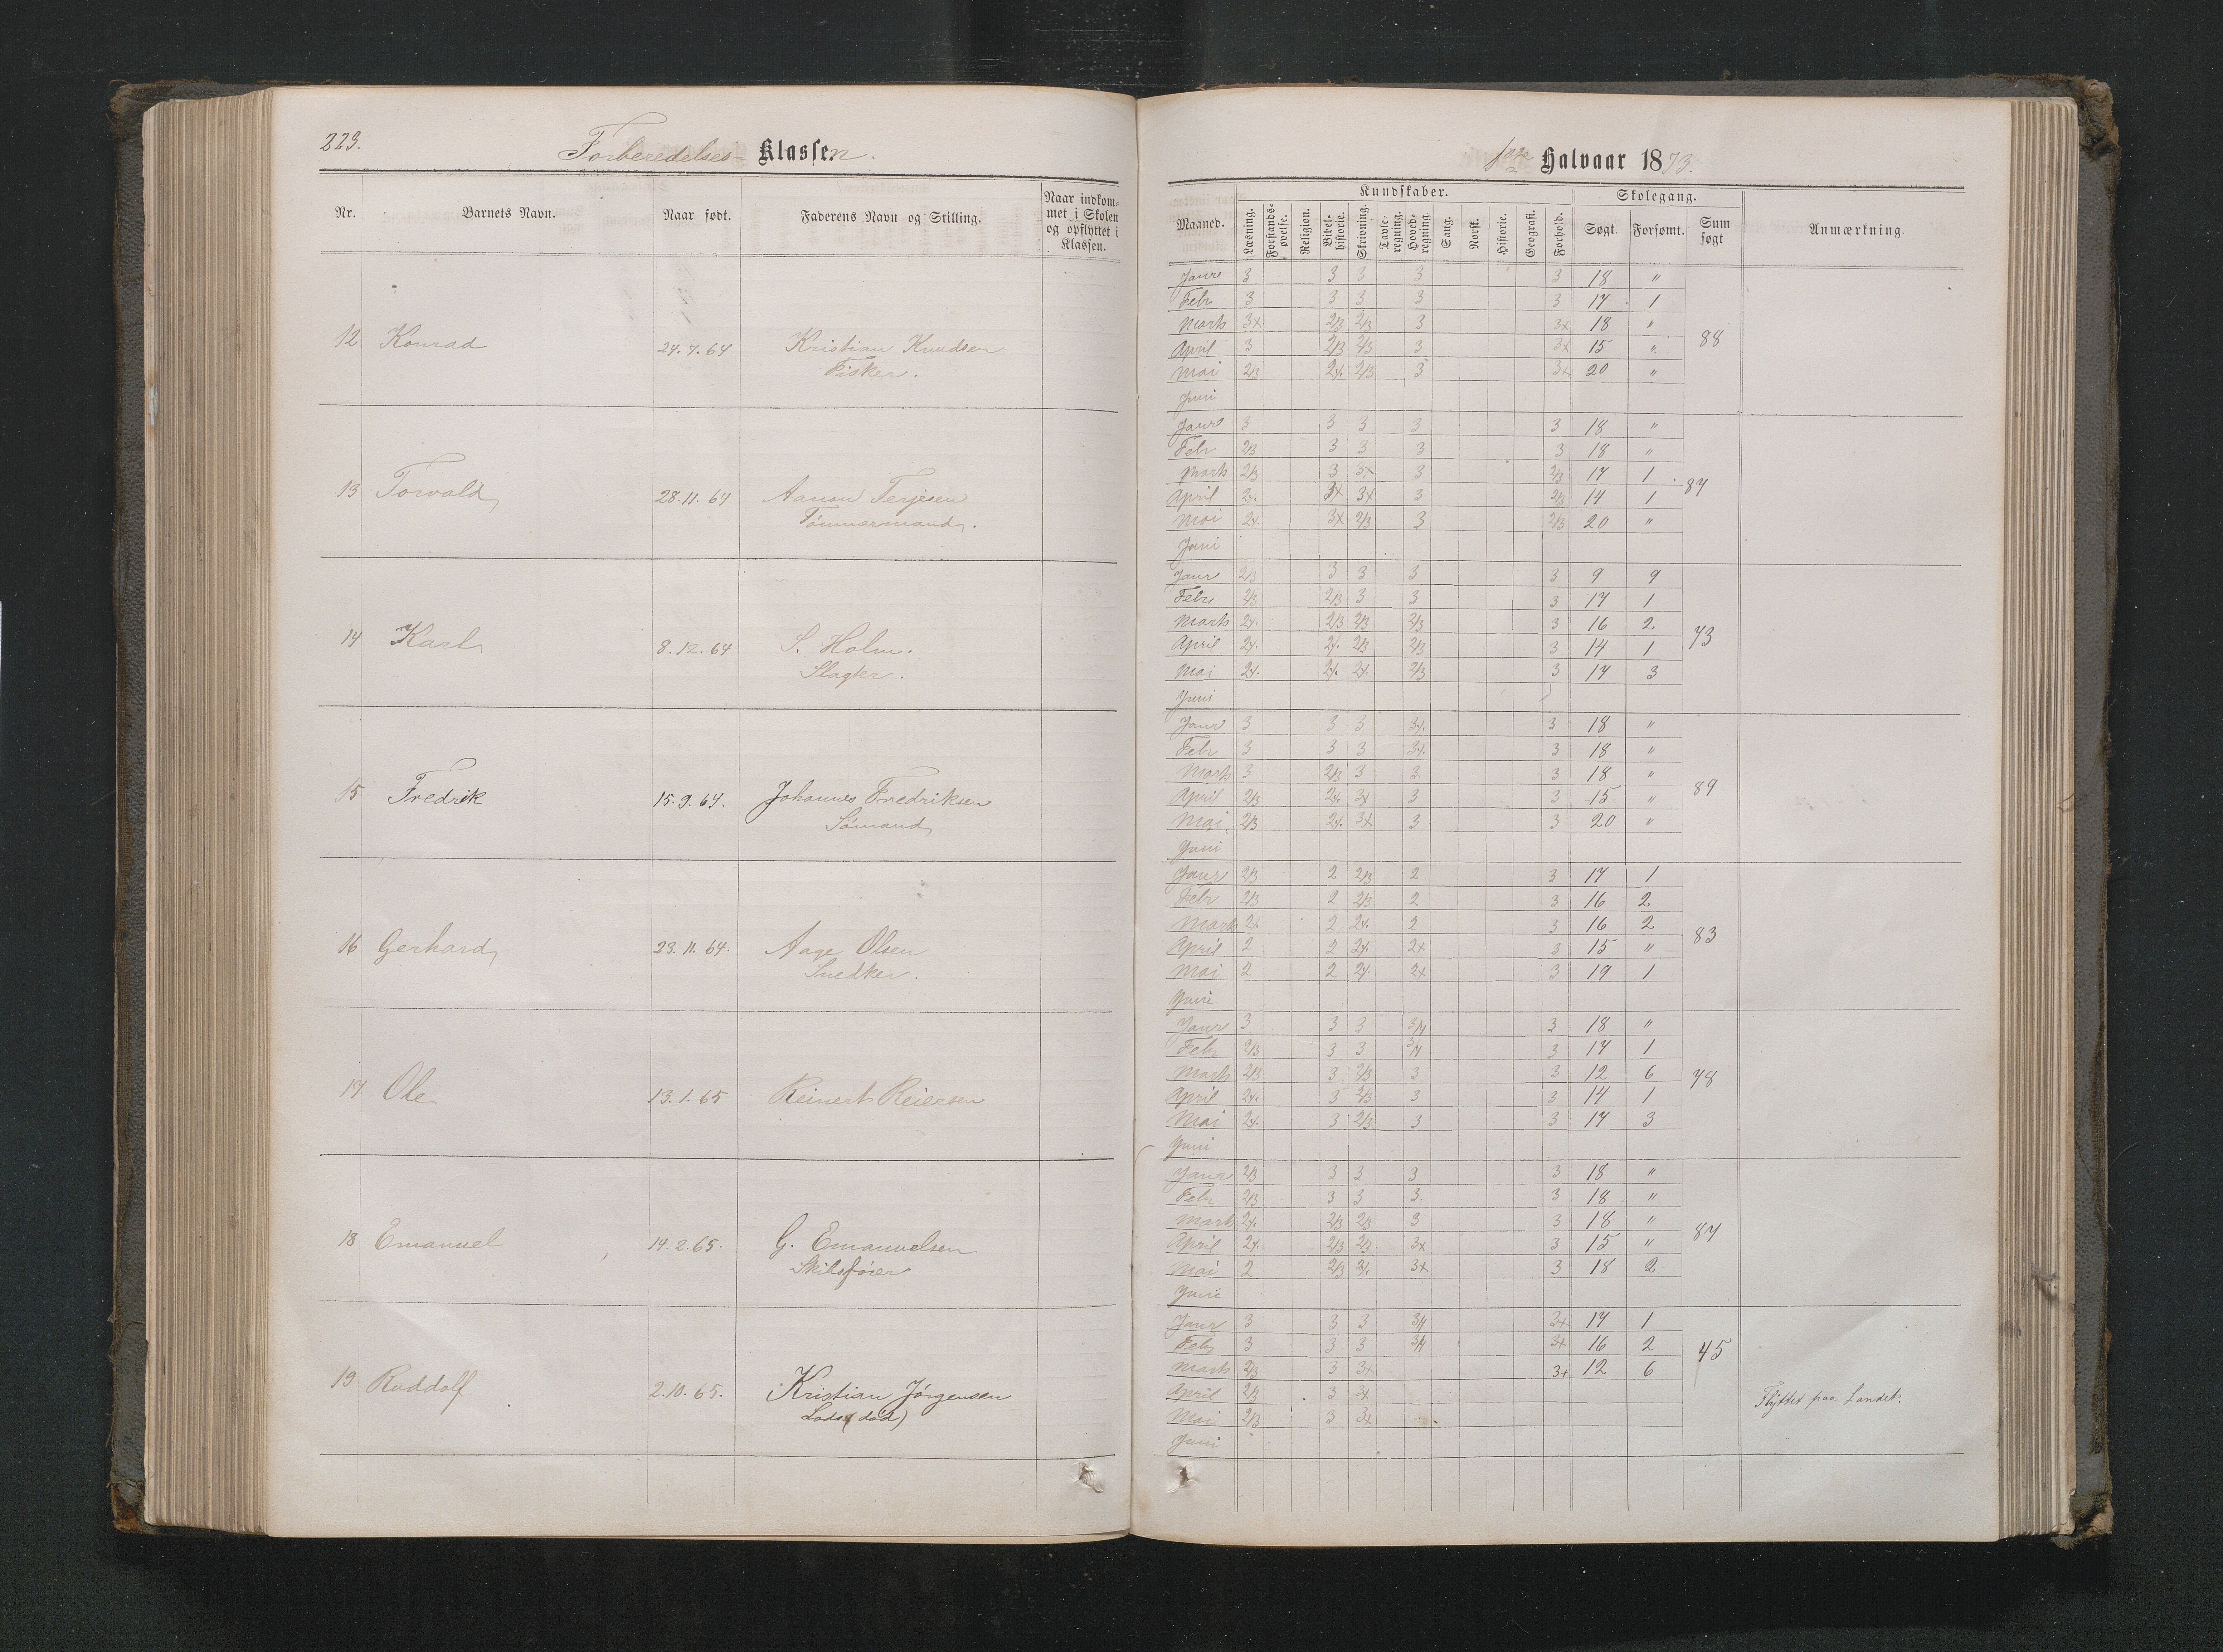 223.
Forberedelses- Klassen.
Nr. Barnets Navn. Naar født. Faderens Navn og Stilling. Naar indkommet i Skolen og opflyttet i Klassen.
12 Konrad 24.7.64 Kristian Knudsen
Fisker.
13 Torvald 28.11.64 Aanon Terjesen
Tømmermand.
14 Karl 8.12.64 S. Holm.
Slagter.
15 Fredrik 15.9.64. Johannes Fredriksen
Sømand
16 Gerhard 23.11.64. Aage Olsen
Snedker.
17 Ole 13.1.65 Reinert Reiersen
18 Emanuel 14.2.65. G. Emanuelsen
Skibsfører
19 Ruddolf 2.10.65. Kristian Jörgensen
Lods (död)
1ste Halvaar 1873.
Maaned. Kundskaber. Skolegang. Sum søgt Anmærkning.
Læsning. Forstandsøvelse. Religion. Bibelhistorie. Skrivning. Tavleregning. Hovedregning. Sang. Norsk. Historie. Geografi. Forhold. Søgt. Forsømt.
Janr 3 3 3 3 3 18 "
Febr 3 3 3 3 3 17 1
Marts 3x 2/3 2/3 3 3x 18 "
April 3 2/3 2/3 3 3x 15 "
Mai 2/3 2x. 2/3 3 3x 20 "
Juni
88
Janr 3 3 3 3 3 18 "
Febr 2/3 3 3 3 3 18 "
Marts 2/3 3 3x 3 2/3 17 1
April 2x. 3x 3x 3 2/3 14 1
Mai 2x. 3x 2/3 3 2/3 20 "
Juni
87
Janr 2/3 3 3 3 3 9 9
Febr 2/3 2/3 3 3 3 17 1
Marts 2x. 2/3 2/3 2/3 3 16 2
April 2x. 2x. 2/3 2/3 3 14 1
Mai 2x. 2x. 2x. 2/3 3 17 3
Juni
73
Janr 3 3 3 3x. 3 18 "
Febr 3 3 3 3x. 3 18 "
Marts 3 2/3 3 3 3 18 "
April 2/3 2x. 3x 3 3 15 "
Mai 2/3 2x. 3x 3 3 20 "
Juni
89
Janr 2/3 2 2/3 2 3 17 1
Febr 2/3 2 2/3 2 3 16 2
Marts 2x 2 2x. 2 3 16 2
April 2 2 2x. 2x 3 15 "
Mai 2 2 2x. 2x 3 19 1
Juni
83
Janr 3 3 3 3/4 3 18 "
Febr 2/3 3 3 3/4 3 17 1
Marts 2/3 3 2/3 3 3 12 6
April 2x. 3 2/3 3 3 14 1
Mai 2x. 3 2/3 3 3 17 3
Juni
78
Janr 2/3 3 3 3 3 18 "
Febr 2/3 3 3 3 3 18 "
Marts 2x. 2/3 2/3 3 3 18 "
April 2x. 2/3 2/3 3x 3 15 "
Mai 2 2/3 2x. 3x 3 18 2
Juni
87
Janr 3 3 3 3/4 3x 17 1
Febr 3 3 3 3/4 3x 16 2
Marts 2/3 3 3x 3x 12 6
April 2/3 3 3x
Mai 2/3 3 3x
Juni
45
Flyttet paa Landet.